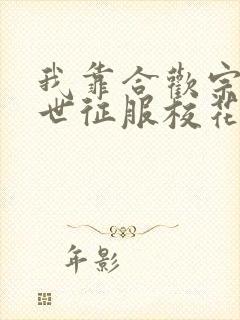 我靠合歡宗
世征服校花
年影